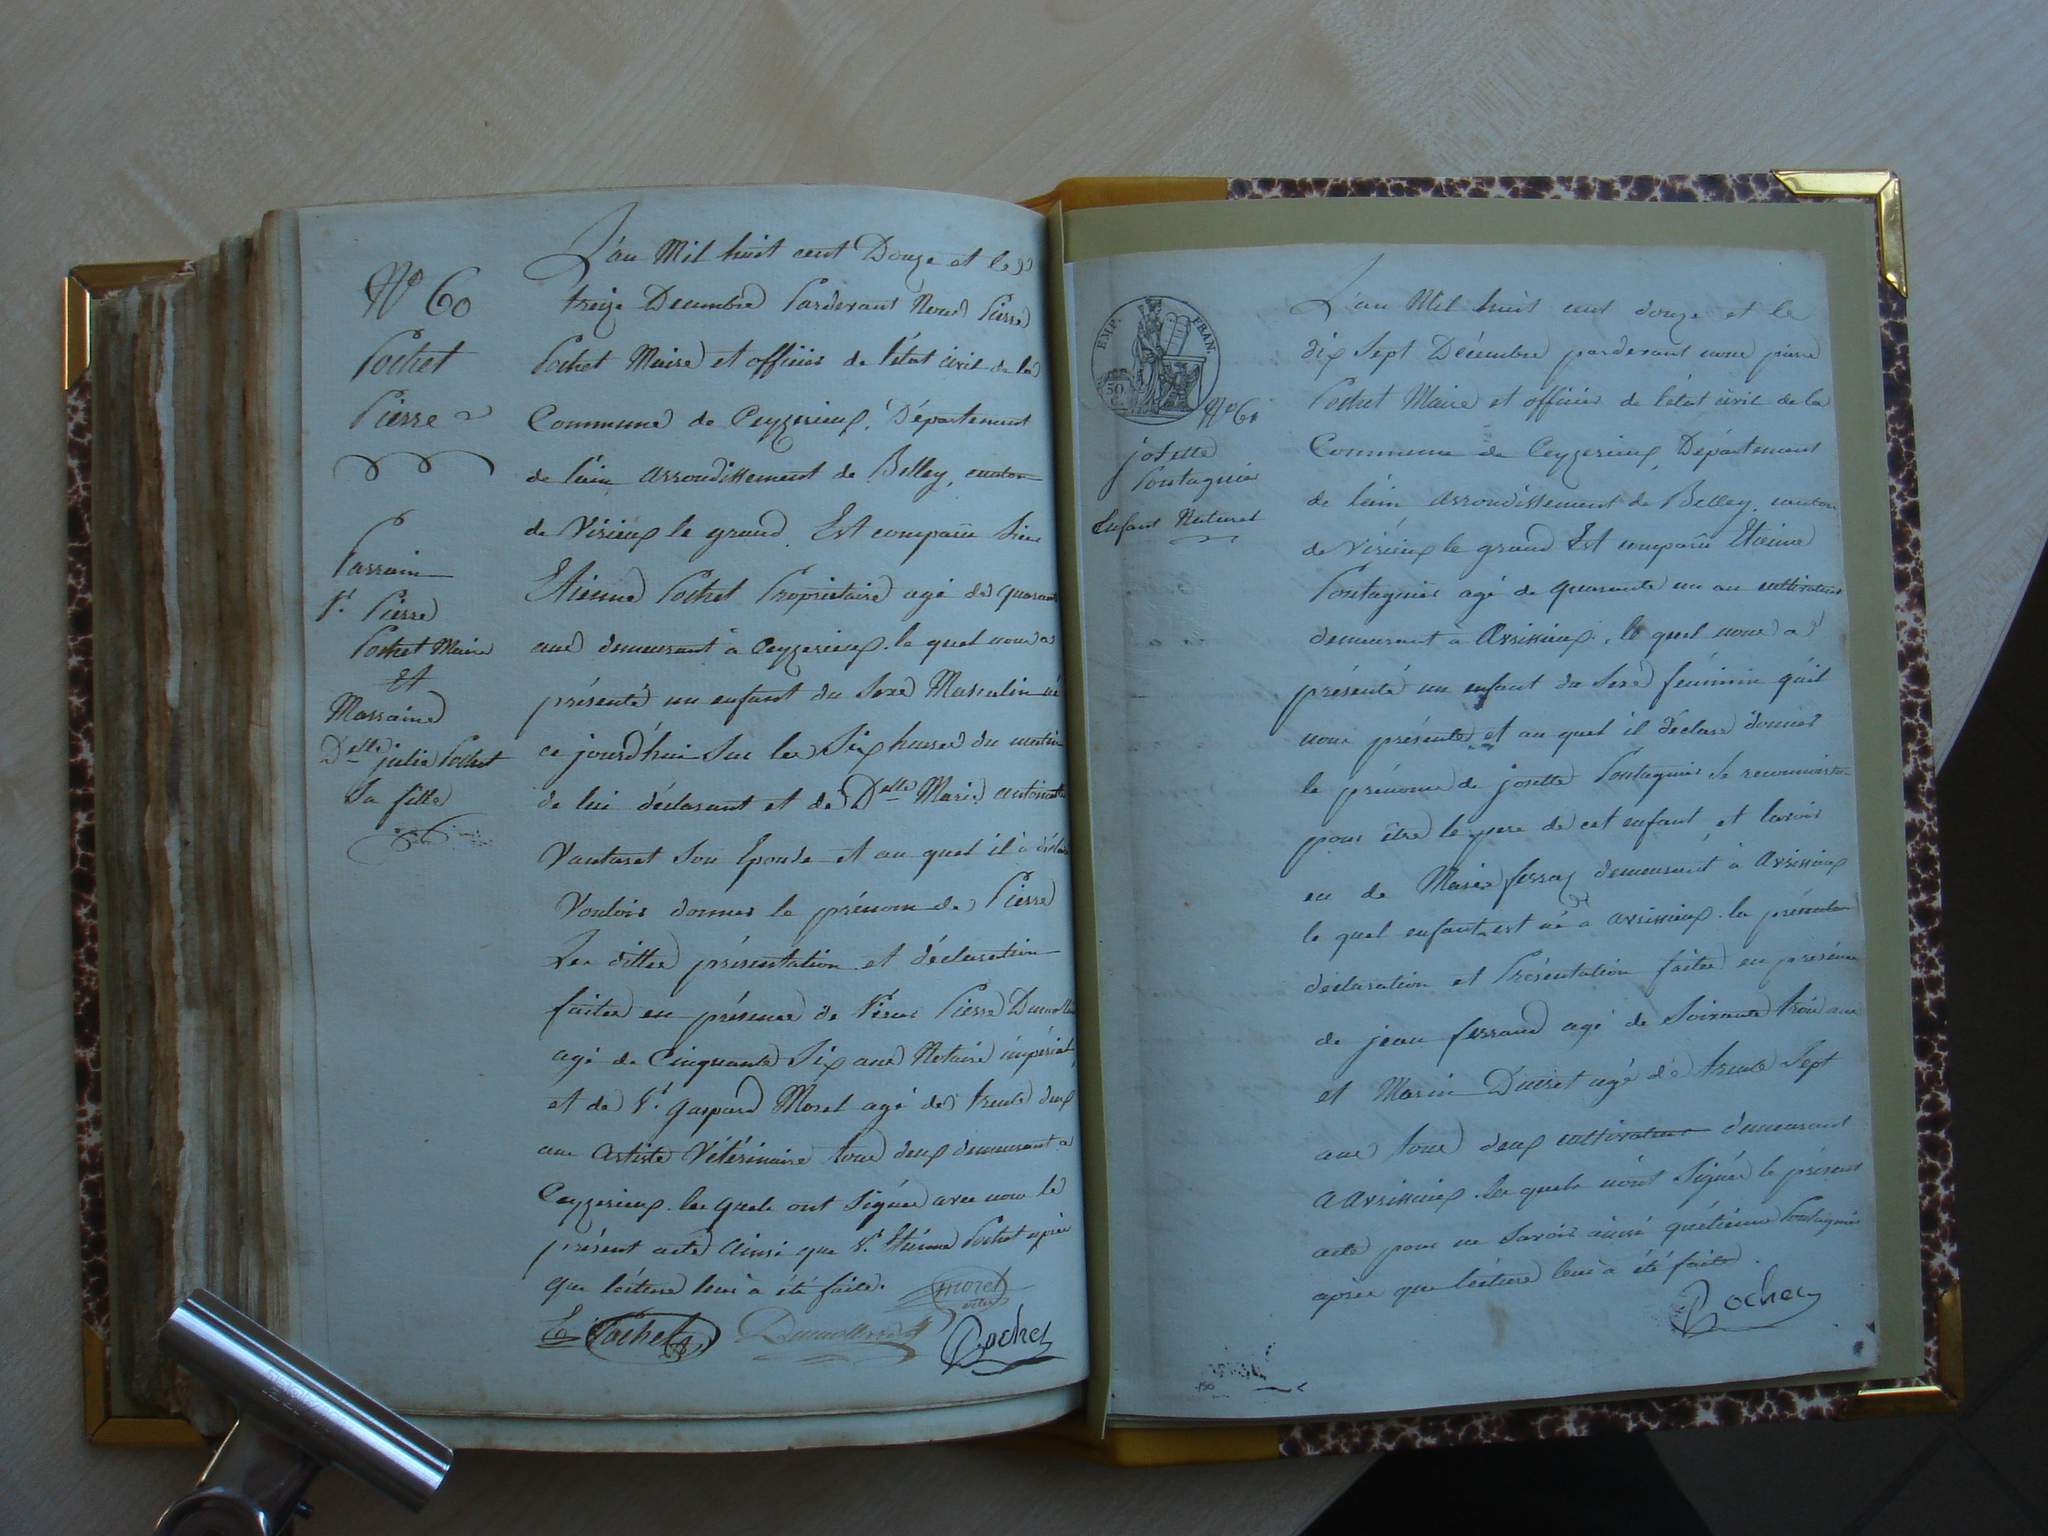 N° 60
Pochet
Pierre
Parrain
Sr. Pierre
Pochet Maire
Et
Marraine
Delle julie Pochet
Sa fille
L'an Mil huit cent Douze et le
treize Decembre Pardevant Nous Pierre
Pochet Maire et officier de l'état civil de la
Commune de Ceyzerieux, Département
de l'ain arrondissement de Belley, canton
de Virieux le grand. Est comparu Sieur
Etienne Pochet Propriétaire agé de quarante
ans demeurant à Ceyzerieux. le quel nous a
présenté un enfant du Sexe Masculin né
ce jourd'hui Sur les Six heures du matin
de lui déclarant et de Delle Marie antoinette
Vantaret Son Epouse et au quel il a déclaré
Vouloir donner le prénom de Pierre
Les dittes présentation et déclaration
faites en présence de Sieur Pierre Dumollard
agé de Cinquante Six ans Notaire impérial
et de Sr. gaspard Morel agé de trente deux
ans Artiste Vétérinaire tous deux demeurant a
Ceyzerieux. les quels ont Signés avec nous le
présent acte ainsi que Sr. Etienne Pochet après
que lecture leur à été faite.
morel
Pochet
Pochet
EMP. FRAN.
50
N° 61
josette
Pontagnier
Enfant Naturel
L'an Mil huit cent douze et le
dix Sept Décembre pardevant nous pierre
Pochet Maire et officier de l'état civil de la
Commune de Ceyzerieux, Département
de l'ain arrondissement de Belley, canton
de Virieux le grand Est comparu Etienne
Pontagnier agé de quarante un an cultivateur
demeurant à Avrissieux, le quel nous a
présenté un enfant du Sexe féminin qu'il
nous présente et au quel il déclare donner
le prénoms de josette Pontagnier Se reconnoitre
pour être le pere de cet enfant, et lavoir
eu de Marie ferraz demeurant à Avrissieux
le quel enfant est né a avrissieux. les présentes
déclaration et Présentation faites en présence
de jean ferrand agé de Soixante trois ans
et Marin Ducret agé de trente Sept
ans tous deux cultivateurs demeurant
a Avrissieux. les quels n'ont Signés le présent
acte pour ne Savoir ainsi qu'étienne Pontagnier
après que lecture leur à été faite.
Pochet